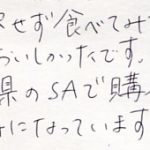 せず食べてみて
おいしかったです。
県のSAで購
になっています